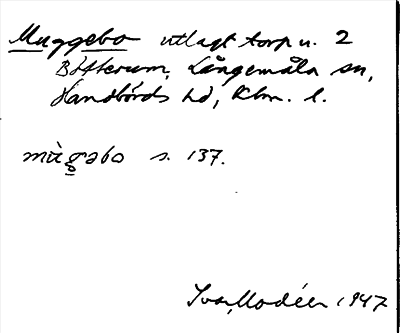 Muggebo utlagt torp u. 2
Bötterum, Långemåla sn,
Handbörds hd, Klm. l.
mùgəbo s. 137.
Ivar Modéer 1947